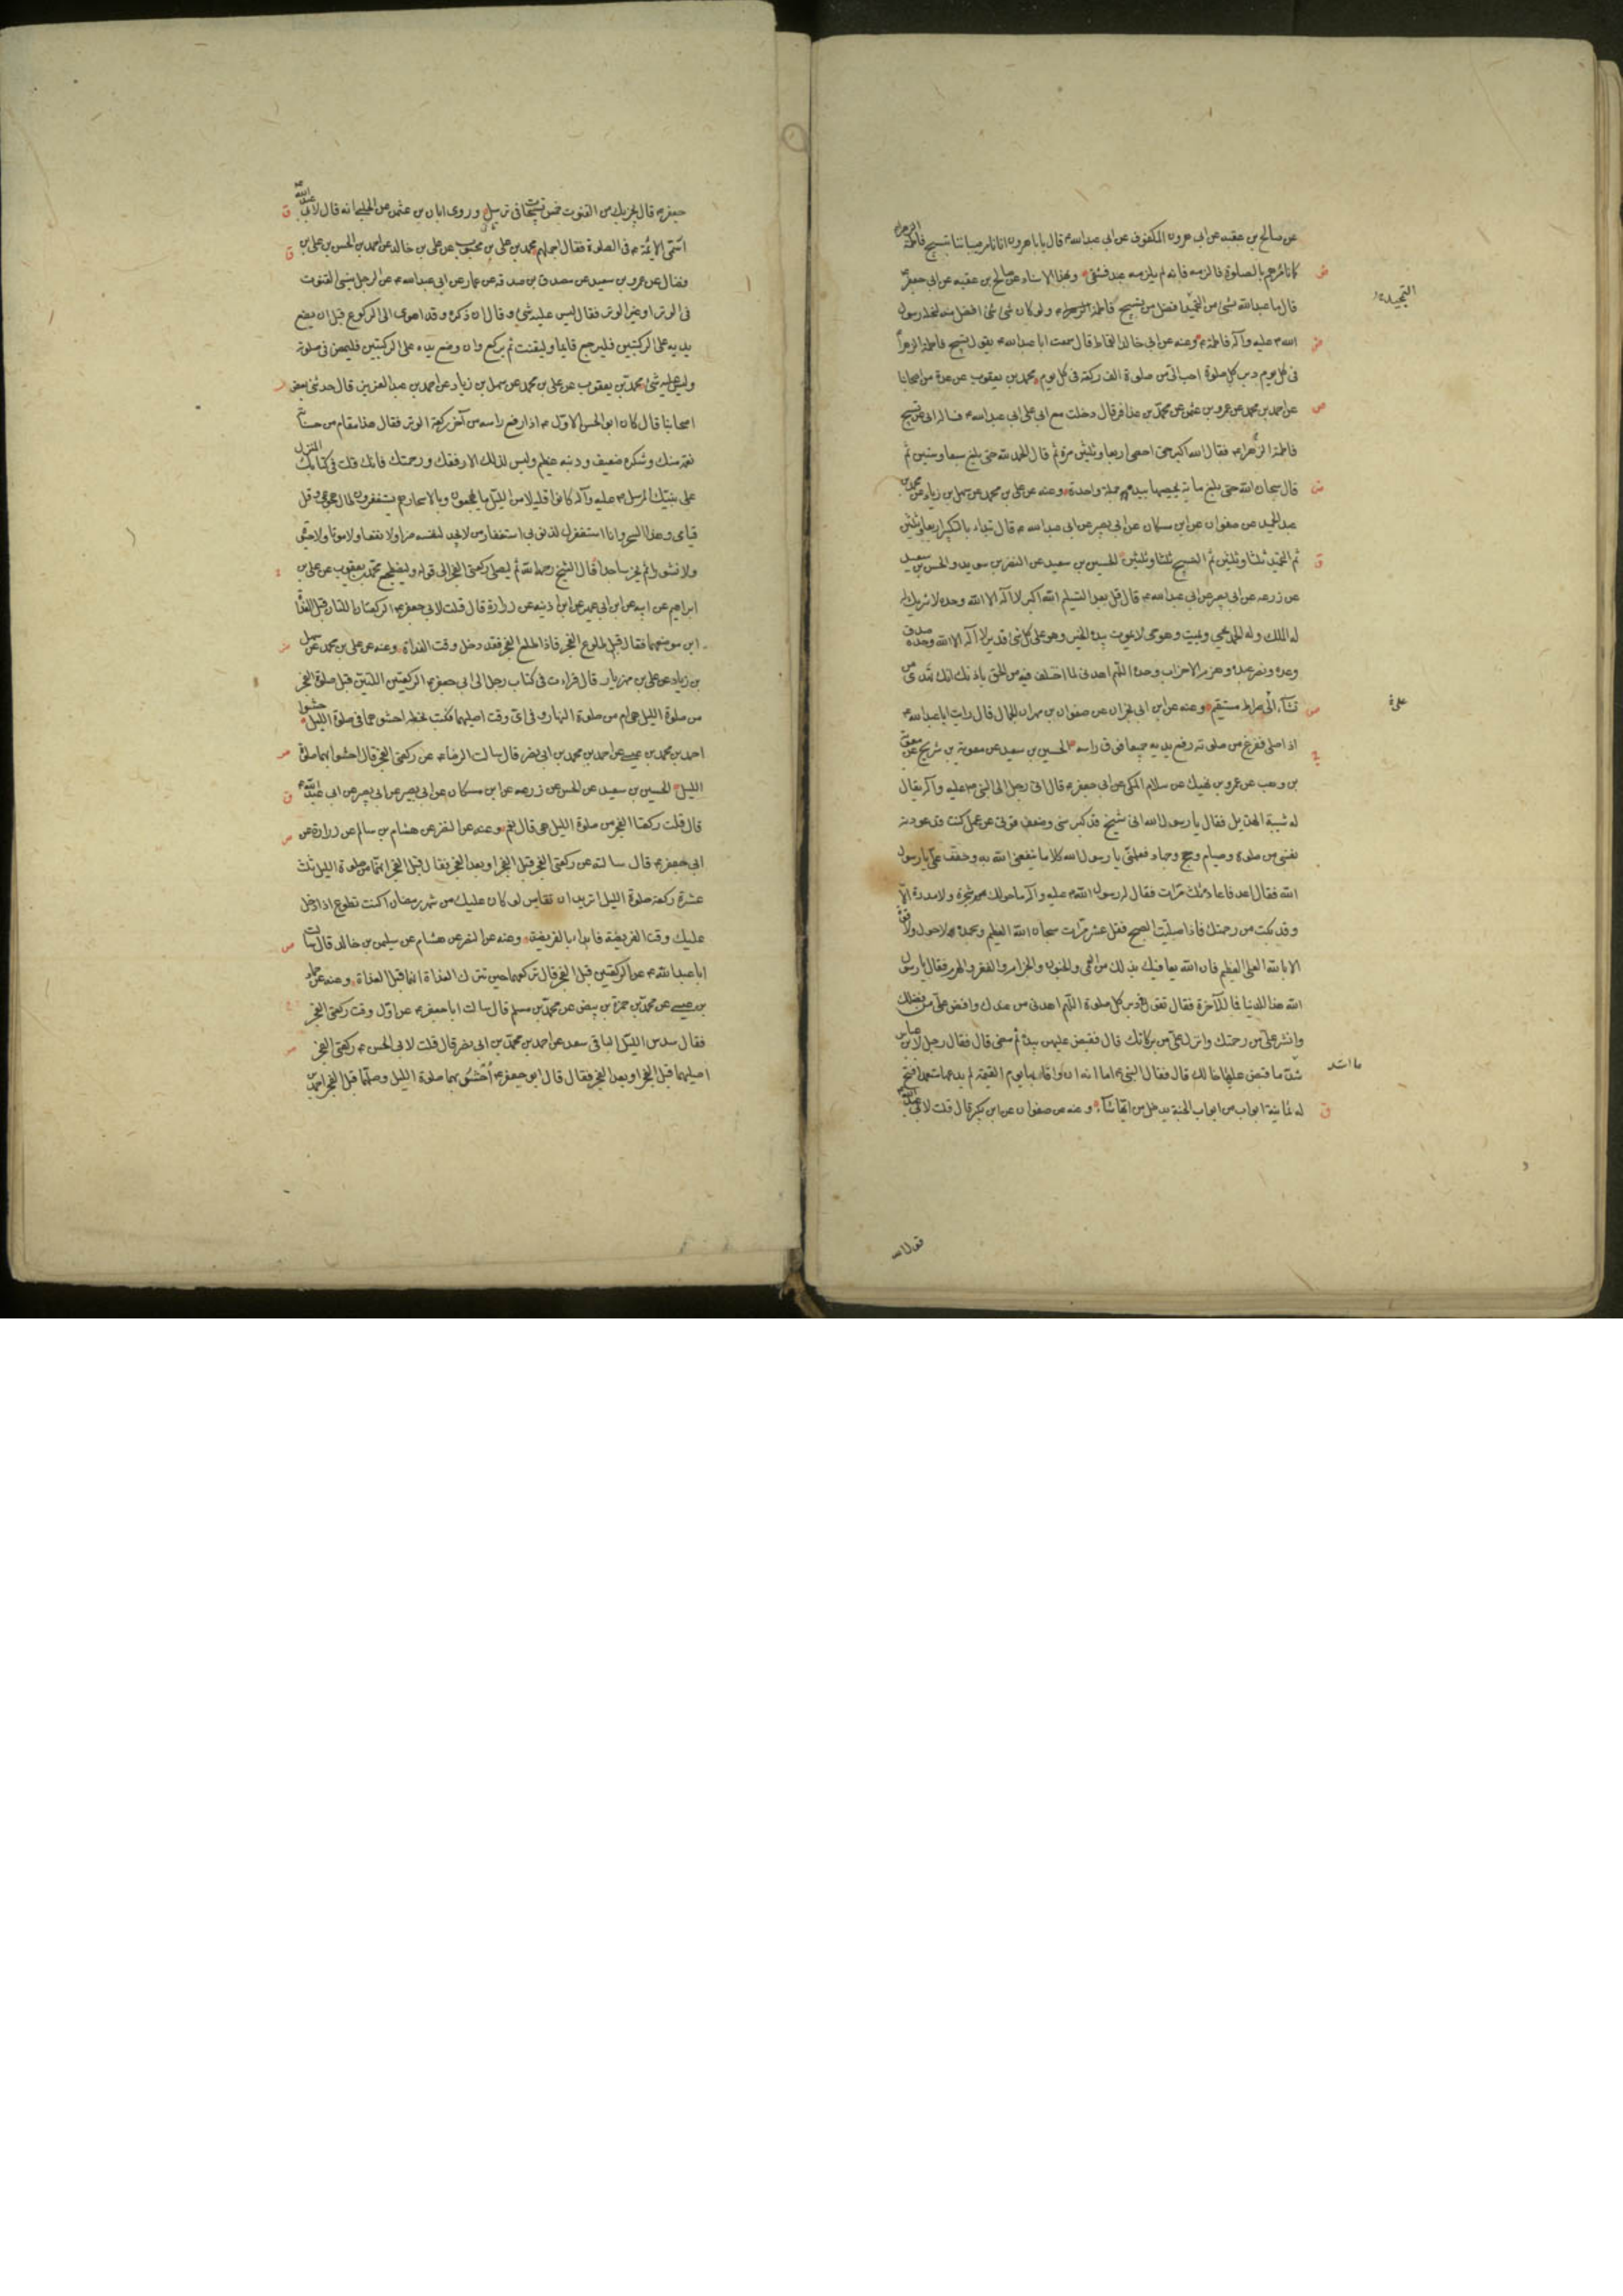 عن صالح بن عقبه عن ابى هرون المكفوف عن ابى عبدالله ع قال يا با هرون انا نامر صبياننا بتسبيح فاطمة الزهراء
كما نامرهم بالصلوة فالزمه فانه لم يلزمه عبد فشقى وبهذا الاسناد عن صالح بن عقبه عن ابى جعفر ع
قال ما عبد الله بشئ من التحميد افضل من تسبيح فاطمة الزهراء ولو كان شئ افضل منه لنحله رسول
الله ص عليه وآله فاطمة ع وعنه عن ابى خالد القماط قال سمعت ابا عبدالله ع يقول تسبيح فاطمة الزهرا
فى كل يوم دبر كل صلوة احب الىّ من صلوة الف ركعة فى كل يوم محمد بن يعقوب عن عدة من اصحابنا
عن احمد بن محمد عن عمرو بن عثمن عن محمد بن عذافر قال دخلت مع ابى على ابى عبدالله ع فساله ابى عن تسبيح
فاطمة الزهراء فقال الله اكبر حتى احصى اربعا وثلثين مرة ثم قال الحمد لله حتى بلغ سبعا وستين ثم
قال سبحان الله حتى بلغ مائة يحصيها بيده جملة واحدة وعنه عن على بن محمد عن سهل بن زياد عن محمد بن
عبد الحميد عن صفوان عن ابن مسكان عن ابى بصير عن ابى عبدالله ع قال تبداء بالتكبير اربعا وثلثين
ثم التحميد ثلثا وثلثين ثم التسبيح ثلثا وثلثين الحسين بن سعيد عن النضر بن سويد والحسن بن سعيد
عن زرعه عن ابى بصير عن ابى عبدالله ع قال قل بعد التسليم الله اكبر لا اله الا الله وحده لا شريك له
له الملك وله الحمد يحيى ويميت وهو حى لا يموت بيده الخير وهو على كل شئ قدير لا اله الا الله وحده صدق
وعده ونصر عبده وهزم الاحزاب وحده اللهم اهدنى لما اختلف فيه من الحق باذنك انك تهدى من
تشآء الى صراط مستقيم وعنه عن ابن ابى نجران عن صفوان بن مهران الجمال قال رايت ابا عبدالله ع
اذا صلى ففرغ من صلوته رفع يديه جميعا فوق راسه الحسين بن سعيد عن معوية بن شريح عن معوية
بن وهب عن عمرو بن نهيك عن سلام المكى عن ابى جعفر ع قال اتى رجل الى النبى ص عليه وآله يقال
له شيبة الهذيل فقال يا رسول الله انى شيخ قد كبر سنى وضعفت قوتى عن عمل كنت قد عودته
نفسى من صلوة وصيام وحج وجهاد فعلمنى يا رسول الله كلاما ينفعنى الله به وخفف علىّ يا رسول
الله فقال اعد فاعاد ثلث مرات فقال له رسول الله ص عليه وآله ما حولك شجرة ولا مدرة الا
وقد بكت من رحمتك فاذا صليت الصبح فقل عشر مرات سبحان الله العظيم وبحمده ولا حول ولا قوة
الا بالله العلى العظيم فان الله يعافيك بذلك من العمى والجنون والجزام والفقر والهرم فقال يا رسول
الله هذا للدنيا فما للآخرة فقال تقول فى دبر كل صلوة اللهم اهدنى من عندك وافض علىّ من فضلك
وانشر علىّ من رحمتك وانزل علىّ من بركاتك قال فقبض عليهن بيده ثم مضى قال فقال رجل لابن عباس
شد ما قبض عليها خالك قال فقال النبى ص اما انه ان وافا بها يوم القيمة لم يدعها متعمدا فتح
له ثمانية ابواب من ابواب الجنة يدخل من ايها شآء وعنه عن صفوان عن ابن بكير قال قلت لابى عبدالله
التحميد
ما اشد
قول الله
جعفر ع قال يجزيك من القنوت خمس تسبيحات فى ترسل وروى ابان بن عثمن عن الحلبى انه قال لابى عبدالله ع
اسمى الائمة ع فى الصلوة فقال اجملهم محمد بن على بن محبوب عن على بن خالد عن احمد بن الحسن بن على بن
فضال عن عمرو بن سعيد عن مصدق بن صدقه عن عمار عن ابى عبدالله ع عن الرجل ينسى القنوت
فى الوتر او غير الوتر فقال ليس عليه شئ وقال ان ذكره وقد اهوى الى الركوع قبل ان يضع
يديه على الركبتين فليرجع قايما وليقنت ثم يركع وان وضع يده على الركبتين فليمض فى صلوته
وليس عليه شئ محمد بن يعقوب عن على بن محمد عن سهل بن زياد عن احمد بن عبد العزيز قال حدثنى بعض
اصحابنا قال كان ابو الحسن الاول ع اذا رفع راسه من آخر ركعة الوتر فقال هذا مقام من حسناته
نعمة منك وشكره ضعيف وذنبه عظيم وليس لذلك الا رفقك ورحمتك فانك قلت فى كتابك المنزل
على نبيك المرسل ص عليه وآله كانوا قليلا من الليل ما يهجعون وبالاسحار هم يستغفرون طال هجوعى وقل
قيامى وهذا السحر وانا استغفرك لذنوبى استغفار من لا يجد لنفسه ضرا ولا نفعا ولا موتا ولا حيوة
ولا نشورا ثم يخر ساجدا قال الشيخ رحمه الله ثم ليصلى ركعتى الفجر الى قوله وليضطجع محمد بن يعقوب عن على بن
ابراهيم عن ابيه عن ابن ابى عمير عن ابن اذينه عن زرارة قال قلت لابى جعفر ع الركعتان اللتان قبل الغداة
اين موضعهما فقال قبل طلوع الفجر فاذا طلع الفجر فقد دخل وقت الغداة وعنه عن على بن محمد عن سهل
بن زياد عن على بن مهزيار قال قراءت فى كتاب رجل الى ابى جعفر ع الركعتين اللتين قبل صلوة الفجر
من صلوة الليل هى ام من صلوة النهار وفى اى وقت اصليهما فكتب بخطه احشوهما فى صلوة الليل حشوا
احمد بن محمد بن عيسى عن احمد بن محمد بن ابى نصر قال سالت الرضا ع عن ركعتى الفجر قال احشوا بهما صلوة
الليل الحسين بن سعيد عن الحسن عن زرعه عن ابن مسكان عن ابى بصير عن ابى عبدالله ع
قال قلت ركعتا الفجر من صلوة الليل هى قال نعم وعنه عن النضر عن هشام بن سالم عن زرارة عن
ابى جعفر ع قال سالته عن ركعتى الفجر قبل الفجر او بعد الفجر فقال قبل الفجر انهما من صلوة الليل ثلث
عشرة ركعة صلوة الليل اتريد ان تقايس لو كان عليك من شهر رمضان اكنت تطوع اذا دخل
عليك وقت الفريضة فابداء بالفريضة وعنه عن النضر عن هشام عن سليمن بن خالد قال سالت
ابا عبدالله ع عن الركعتين قبل الفجر قال تركعهما حين تترك الغداة انهما قبل الغداة وعنه عن حماد
بن عيسى عن محمد بن حمزة بن بيض عن محمد بن مسلم قال سالت ابا جعفر ع عن اول وقت ركعتى الفجر
فقال سدس الليل الباقى سعد عن احمد بن محمد بن ابى نصر قال قلت لابى الحسن ع ركعتى الفجر
اصليهما قبل الفجر او بعد الفجر فقال قال ابو جعفر ع احش بهما صلوة الليل وصلهما قبل الفجر احمد بن